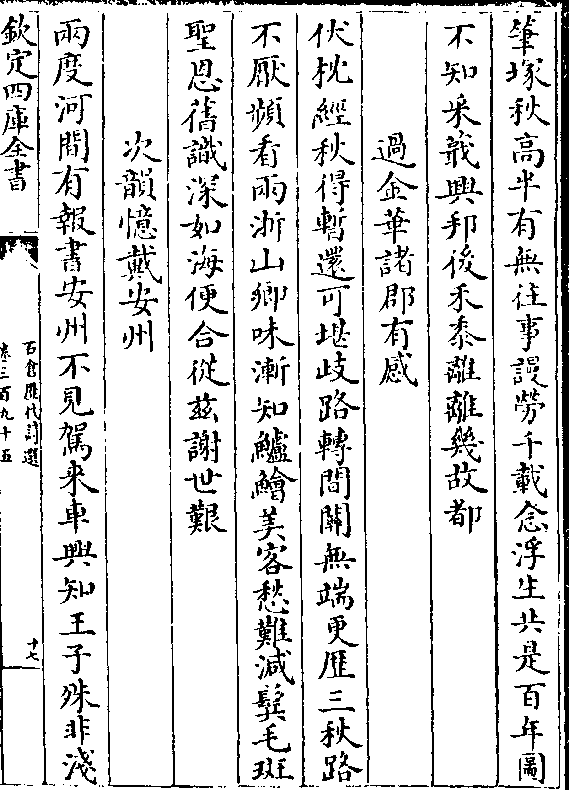 筆塚秋高半有無往事謾勞千載念浮生共是百年圖
不知采蕺興邦後禾黍離離幾故都
過金華諸郡有感
伏枕經秋得暫還可堪歧路轉間關無端更歴三秋路
不厭頻看兩浙山鄉味漸知鱸鱠美客愁難減鬓毛斑
聖恩舊識深如海便合從兹謝世艱
次韻憶戴安州
兩度河間有報書安州不見駕来車興知王子殊非淺
欽定四庫全書
石倉歴代詩選
卷三百九十五
十七